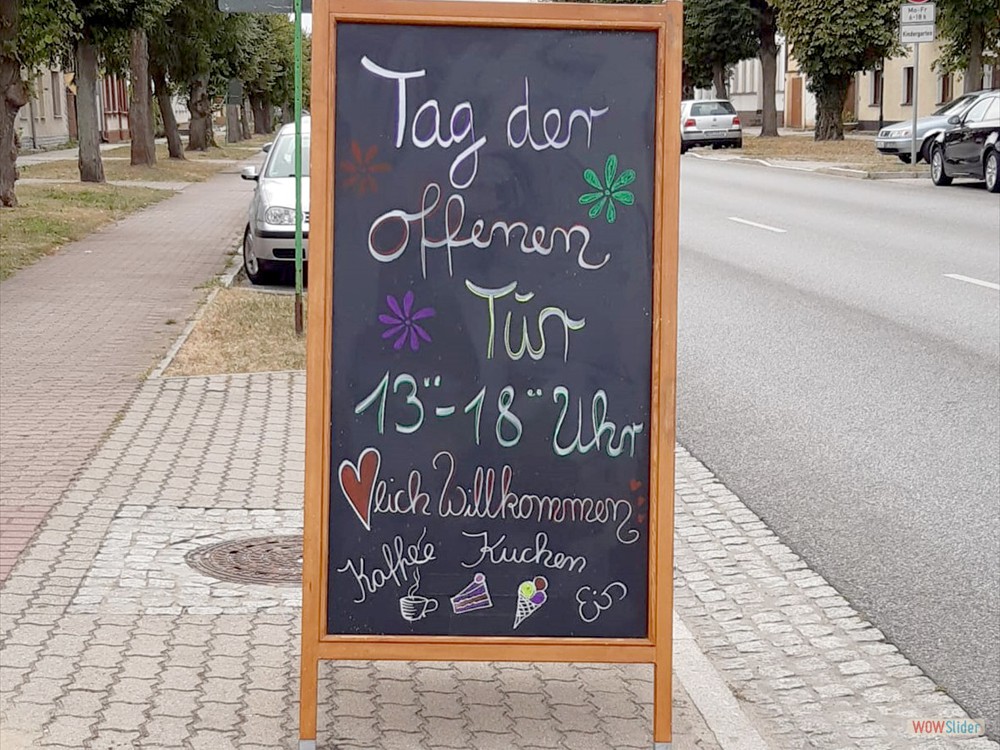 Mo-Fr
6-18 h
Kindergarten
Tag der
offenen
Tür
13°°-18°° Uhr
❤lich Willkommen
Kaffee Kuchen
Eis
WOWSlider